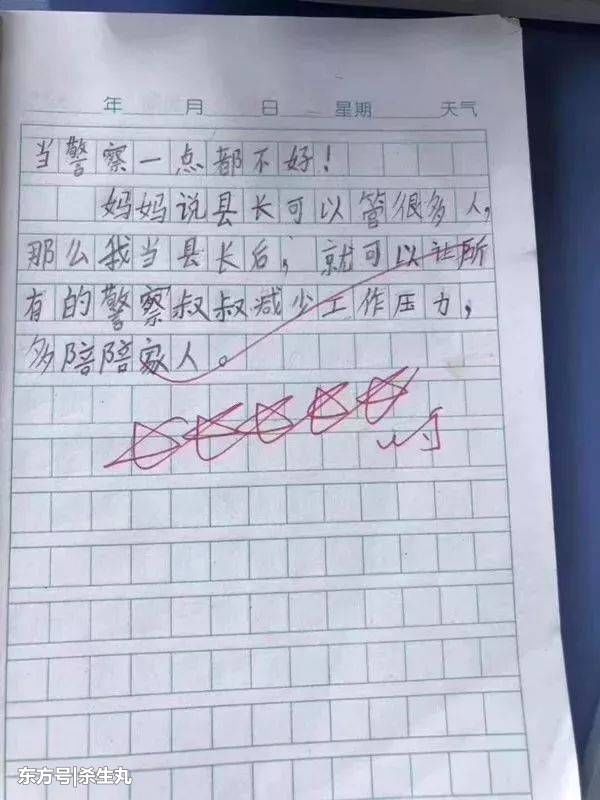 年 月 日 星期 天气
当警察一点都不好!
妈妈说县长可以管很多人,
那么我当县长后,就可以让所
有的警察叔叔减少工作压力,
多陪陪家人。
东方号|杀生丸